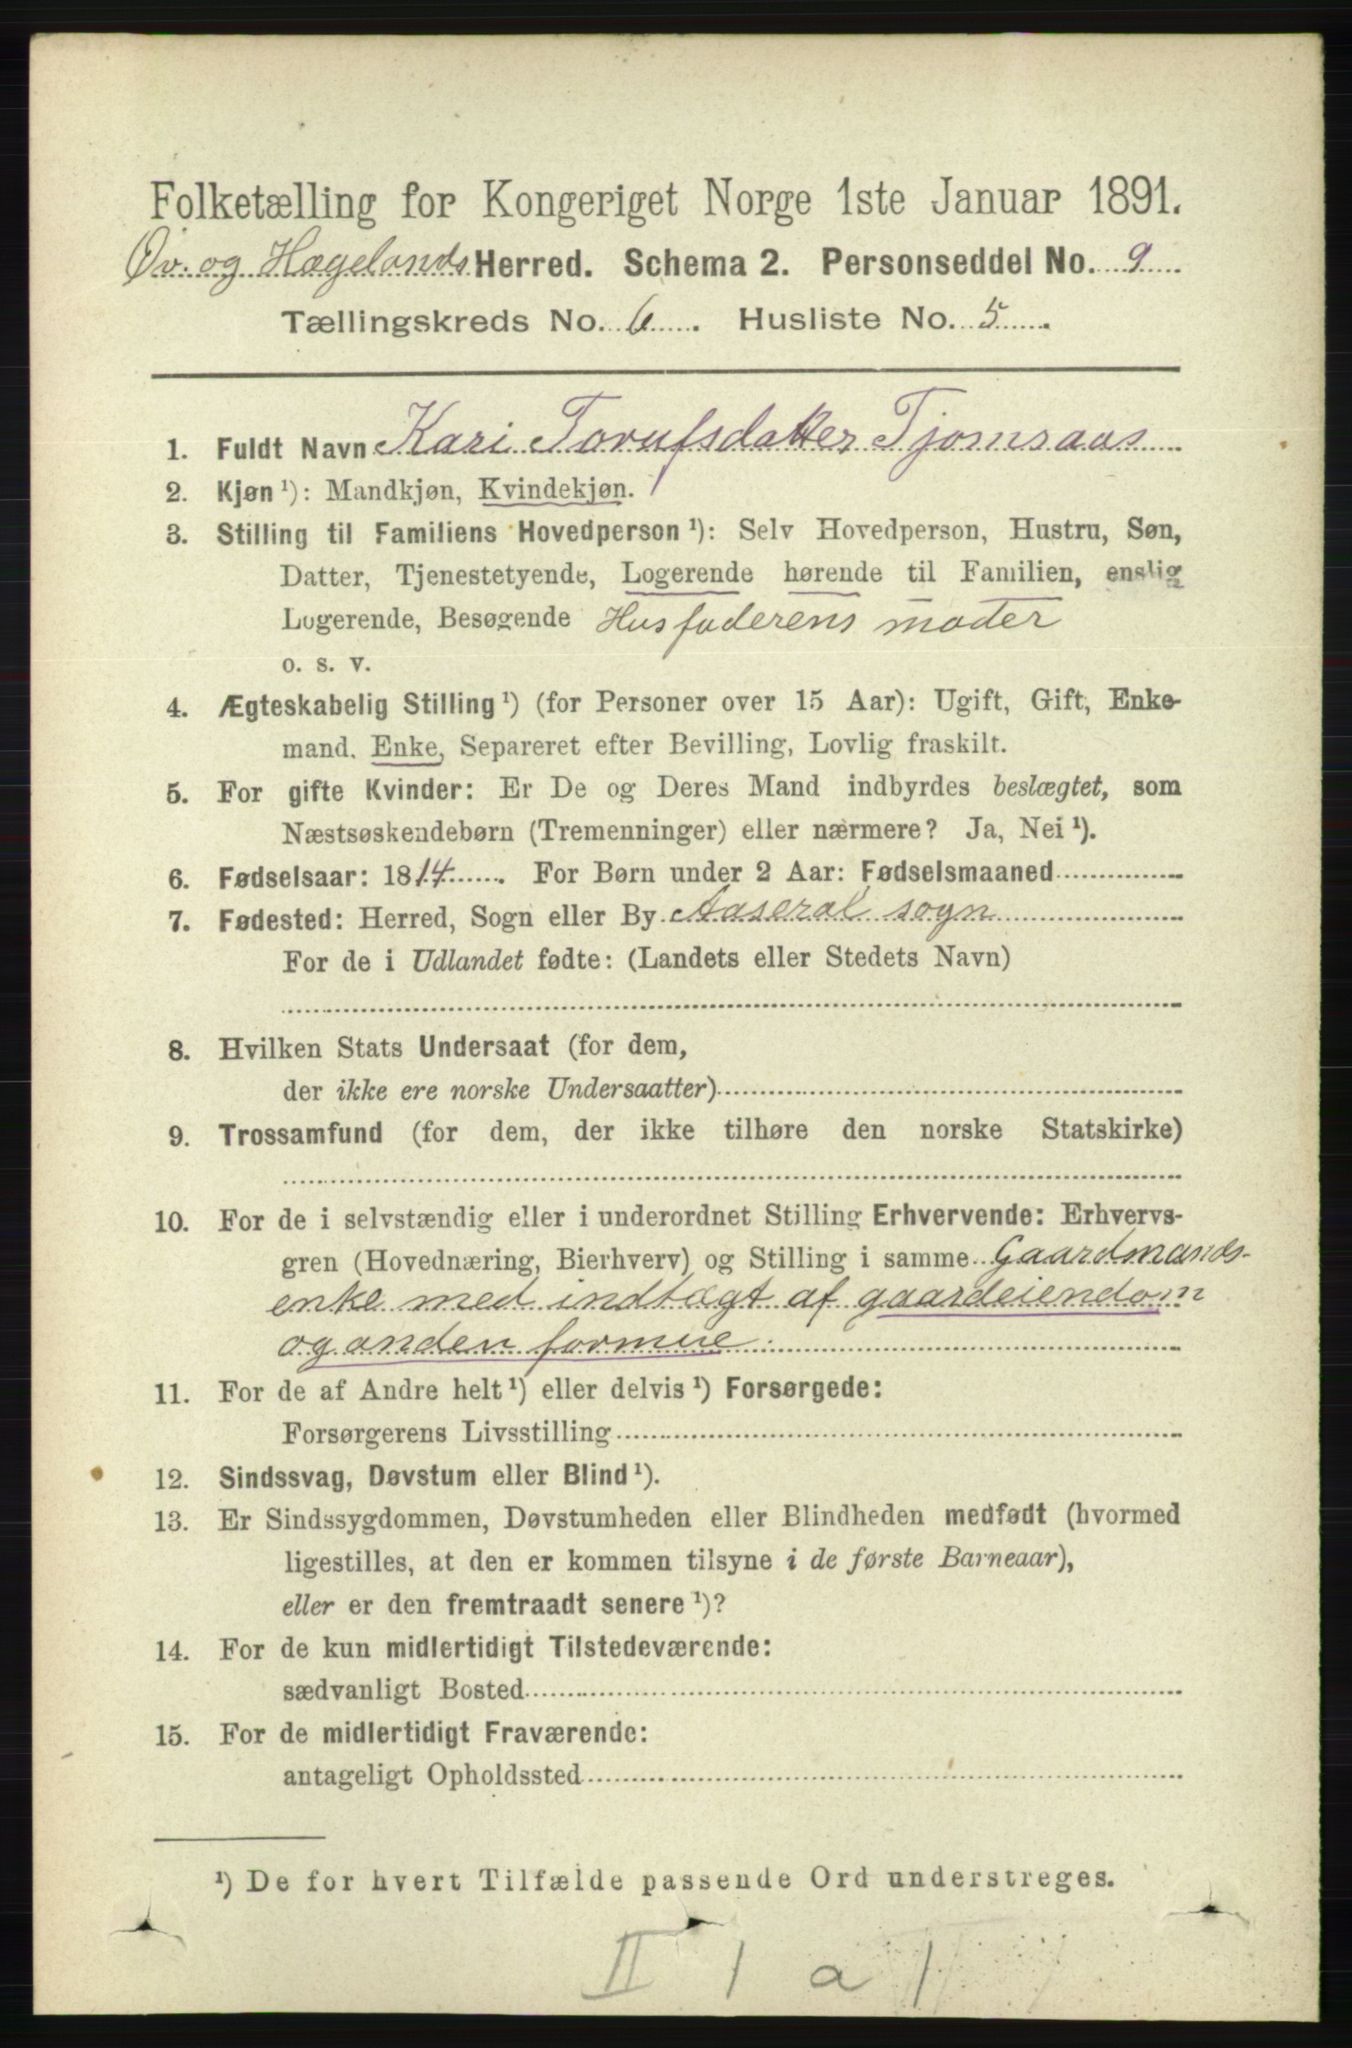 Folketælling for Kongeriget Norge 1ste Januar 1891.
Øv. og Hægelands Herred. Schema 2. Personseddel No. 9
Tællingskreds No. 6. Husliste No. 5.
1. Fuldt Navn Kari Torufsdatter Tjomsaas
2. Kjøn ¹): Mandkjøn, Kvindekjøn.
3. Stilling til Familiens Hovedperson ¹): Selv Hovedperson, Hustru, Søn,
Datter, Tjenestetyende, Logerende hørende til Familien, enslig
Logerende, Besøgende Husfaderens moder
o. s. v.
4. Ægteskabelig Stilling ¹) (for Personer over 15 Aar): Ugift, Gift, Enke-
mand, Enke, Separeret efter Bevilling, Lovlig fraskilt.
5. For gifte Kvinder: Er De og Deres Mand indbyrdes beslægtet, som
Næstsøskendebørn (Tremenninger) eller nærmere? Ja, Nei ¹).
6. Fødselsaar: 1814. For Børn under 2 Aar: Fødselsmaaned
7. Fødested: Herred, Sogn eller By Aaseral sogn
For de i Udlandet fødte: (Landets eller Stedets Navn)
8. Hvilken Stats Undersaat (for dem,
der ikke ere norske Undersaatter)
9. Trossamfund (for dem, der ikke tilhøre den norske Statskirke)
10. For de i selvstændig eller i underordnet Stilling Erhvervende: Erhvervs-
gren (Hovednæring, Bierhverv) og Stilling i samme Gaardmands-
enke med indtægt af gaardeiendom
og anden formue.
11. For de af Andre helt ¹) eller delvis ¹) Forsørgede:
Forsørgerens Livsstilling
12. Sindssvag, Døvstum eller Blind ¹).
13. Er Sindssygdommen, Døvstumheden eller Blindheden medfødt (hvormed
ligestilles, at den er kommen tilsyne i de første Barneaar),
eller er den fremtraadt senere ¹)?
14. For de kun midlertidigt Tilstedeværende:
sædvanligt Bosted
15. For de midlertidigt Fraværende:
antageligt Opholdssted
¹) De for hvert Tilfælde passende Ord understreges.
II 1 a 1